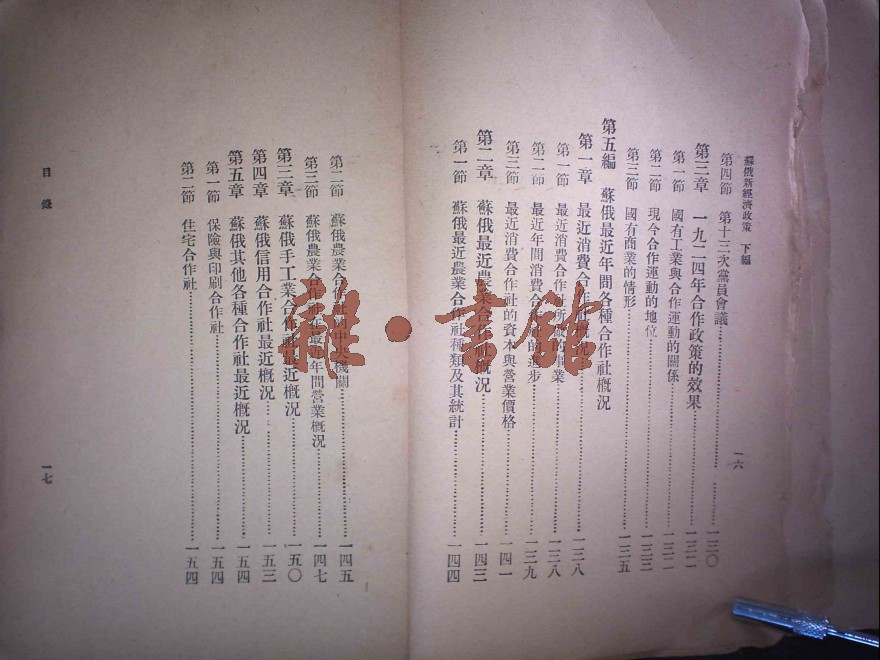 蘇俄新經濟政策 下編
一六
第四節 第十三次黨員會議…一三〇
第三章 一九二四年合作政策的效果…一三二
第一節 國有工業與合作運動的關係…一三二
第二節 現今合作運動的地位…一三三
第三節 國有商業的情形…一三五
第五編 蘇俄最近年間各種合作社概況
第一章 最近消費合作社概況…一三八
第一節 最近消費合作社所做的事業…一三八
第二節 最近年間消費合作社的進步…一三九
第三節 最近消費合作社的資本與營業價格…一四一
第二章 蘇俄最近農業合作社概況…一四三
第一節 蘇俄最近農業合作社種類及其統計…一四四
第二節 蘇俄農業合作社的中央機關…一四五
第三節 蘇俄農業合作社在最近年間營業概況…一四七
第三章 蘇俄手工業合作社最近概況…一五〇
第四章 蘇俄信用合作社最近概況…一五三
第五章 蘇俄其他各種合作社最近概況…一五四
第一節 保險與印刷合作社…一五四
第二節 住宅合作社…一五四
目錄
一七
雜·書館